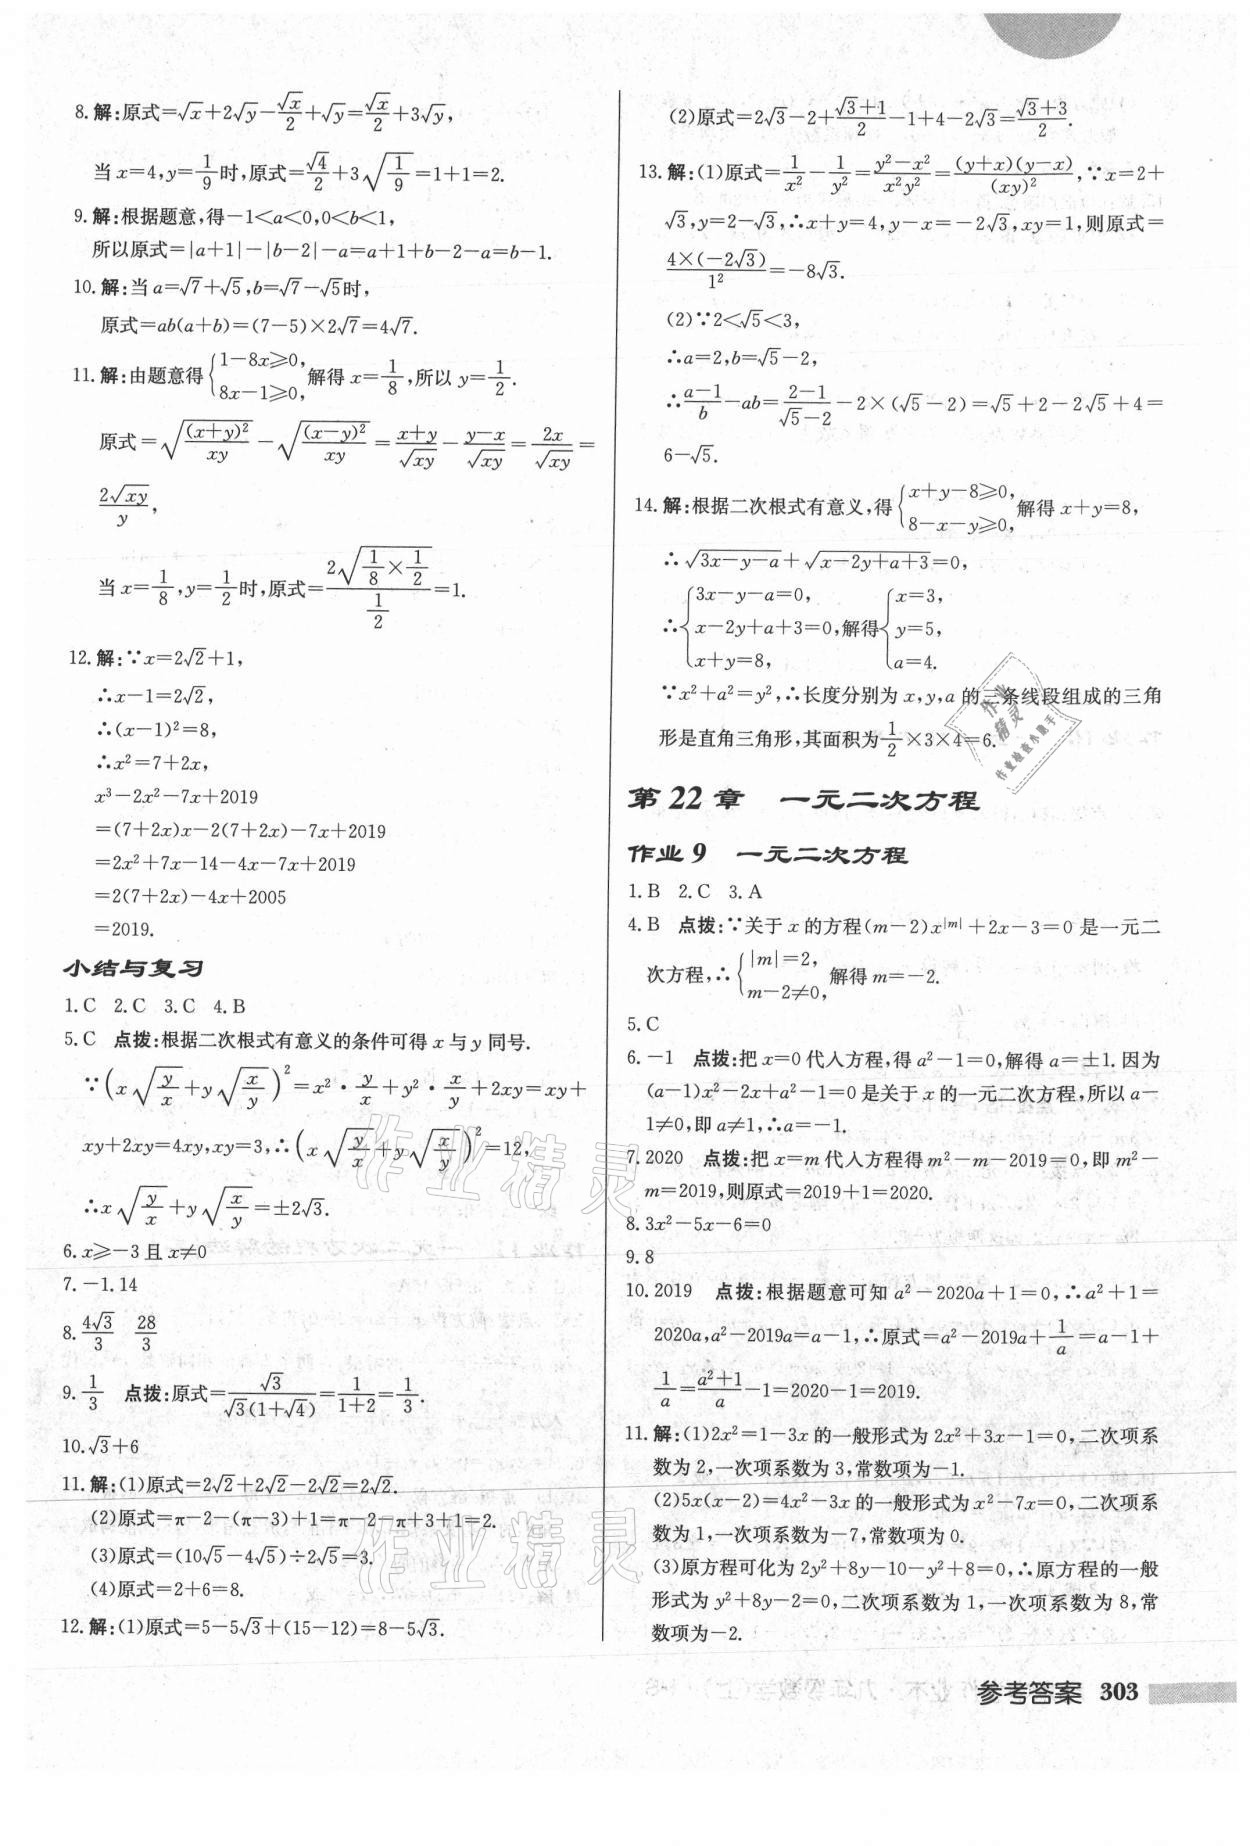 8. 解:原式=√x+2√y-√x/2+√y=√x/2+3√y,
当 x=4,y=1/9时,原式=√4/2+3√(1/9)=1+1=2.
9. 解:根据题意,得-1<a<0,0<b<1,
所以原式=|a+1|-|b-2|-a=a+1+b-2-a=b-1.
10. 解:当 a=√7+√5,b=√7-√5时,
原式=ab(a+b)=(7-5)×2√7=4√7.
11. 解:由题意得{1-8x≥0, 8x-1≥0, 解得 x=1/8,所以 y=1/2.
原式=√((x+y)²/xy)-√((x-y)²/xy)=(x+y)/√(xy)-(y-x)/√(xy)=2x/√(xy)=
2√(xy)/y,
当 x=1/8,y=1/2时,原式=2√(1/8×1/2)/(1/2)=1.
12. 解:∵x=2√2+1,
∴x-1=2√2,
∴(x-1)²=8,
∴x²=7+2x,
x³-2x²-7x+2019
=(7+2x)x-2(7+2x)-7x+2019
=2x²+7x-14-4x-7x+2019
=2(7+2x)-4x+2005
=2019.
小结与复习
1. C 2. C 3. C 4. B
5. C 点拨:根据二次根式有意义的条件可得 x 与 y 同号.
∵(x√(y/x)+y√(x/y))²=x²·y/x+y²·x/y+2xy=xy+
xy+2xy=4xy,xy=3,∴(x√(y/x)+y√(x/y))²=12,
∴x√(y/x)+y√(x/y)=±2√3.
6. x≥-3 且 x≠0
7. -1.14
8. 4√3/3 28/3
9. 1/3 点拨:原式=√3/(√3(1+√4))=1/(1+2)=1/3.
10. √3+6
11. 解:(1)原式=2√2+2√2-2√2=2√2.
(2)原式=π-2-(π-3)+1=π-2-π+3+1=2.
(3)原式=(10√5-4√5)÷2√5=3.
(4)原式=2+6=8.
12. 解:(1)原式=5-5√3+(15-12)=8-5√3.
(2)原式=2√3-2+(√3+1)/2-1+4-2√3=(√3+3)/2.
13. 解:(1)原式=1/x²-1/y²=(y²-x²)/x²y²=(y+x)(y-x)/(xy)²,∵x=2+
√3,y=2-√3,∴x+y=4,y-x=-2√3,xy=1,则原式=
4×(-2√3)/1²=-8√3.
(2)∵2<√5<3,
∴a=2,b=√5-2,
∴(a-1)/b-ab=(2-1)/(√5-2)-2×(√5-2)=√5+2-2√5+4=
6-√5.
14. 解:根据二次根式有意义,得{x+y-8≥0, 8-x-y≥0, 解得 x+y=8,
∴√(3x-y-a)+√(x-2y+a+3)=0,
∴{3x-y-a=0, x-2y+a+3=0, x+y=8, 解得{x=3, y=5, a=4.
∵x²+a²=y²,∴长度分别为 x,y,a 的三条线段组成的三角
形是直角三角形,其面积为1/2×3×4=6.
作业
精灵
作业检查小助手
第 22 章 一元二次方程
作业 9 一元二次方程
1. B 2. C 3. A
4. B 点拨:∵关于 x 的方程(m-2)x^|m|+2x-3=0 是一元二
次方程,∴{|m|=2, m-2≠0, 解得 m=-2.
5. C
6. -1 点拨:把 x=0 代入方程,得 a²-1=0,解得 a=±1. 因为
(a-1)x²-2x+a²-1=0 是关于 x 的一元二次方程,所以 a-
1≠0,即 a≠1,∴a=-1.
7. 2020 点拨:把 x=m 代入方程得 m²-m-2019=0,即 m²-
m=2019,则原式=2019+1=2020.
8. 3x²-5x-6=0
9. 8
10. 2019 点拨:根据题意可知 a²-2020a+1=0,∴a²+1=
2020a,a²-2019a=a-1,∴原式=a²-2019a+1/a=a-1+
1/a=(a²+1)/a-1=2020-1=2019.
11. 解:(1)2x²=1-3x 的一般形式为 2x²+3x-1=0,二次项系
数为 2,一次项系数为 3,常数项为-1.
(2)5x(x-2)=4x²-3x 的一般形式为 x²-7x=0,二次项系
数为 1,一次项系数为-7,常数项为 0.
(3)原方程可化为 2y²+8y-10-y²+8=0,∴原方程的一般
形式为 y²+8y-2=0,二次项系数为 1,一次项系数为 8,常
数项为-2.
作业精灵
作业精灵
参考答案 303